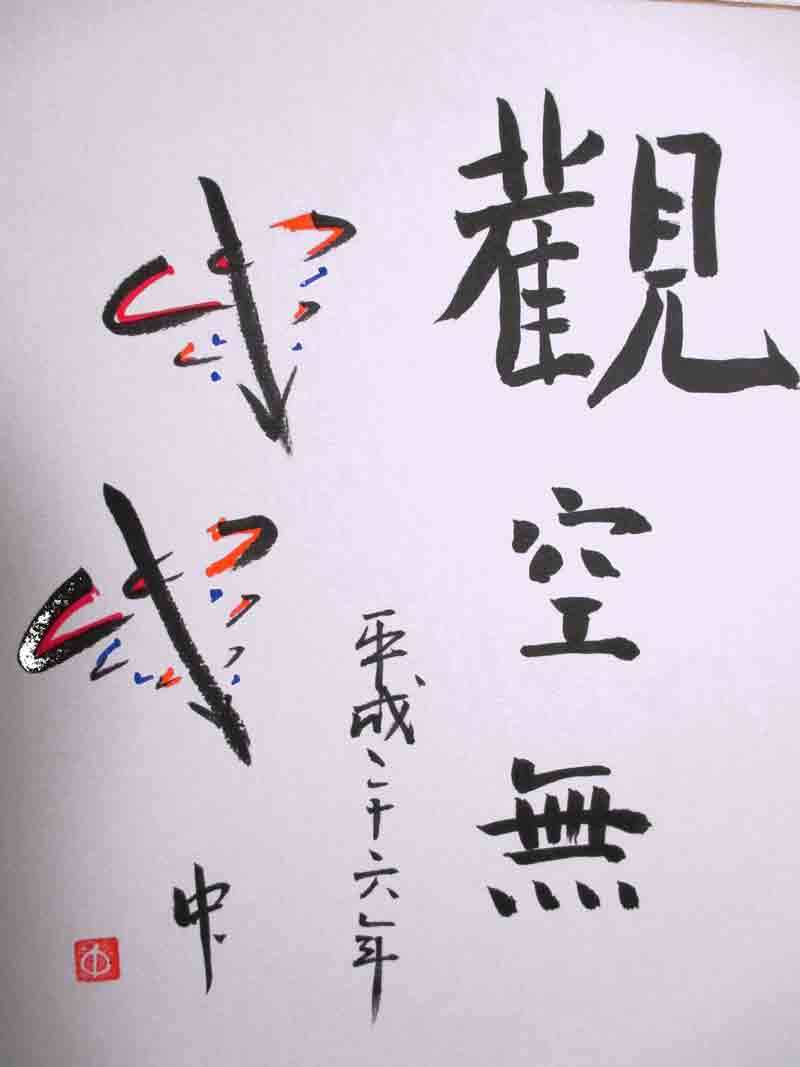 觀空無
平成二十六年
中
中